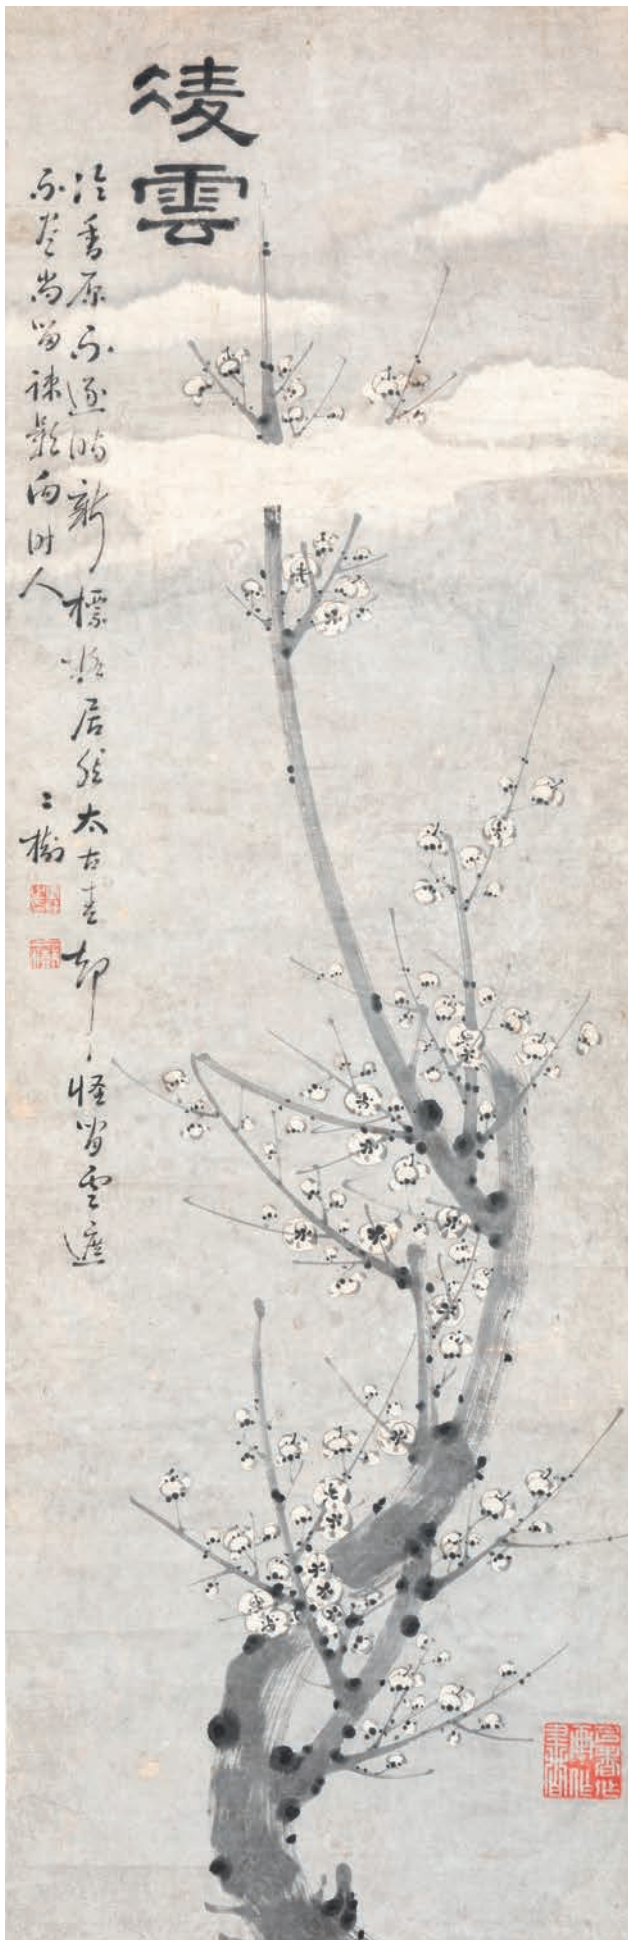 凌雲
冷香原不逐時新標格居然太古春却怪雲遮
不盡尚留疎影向時人
二樹